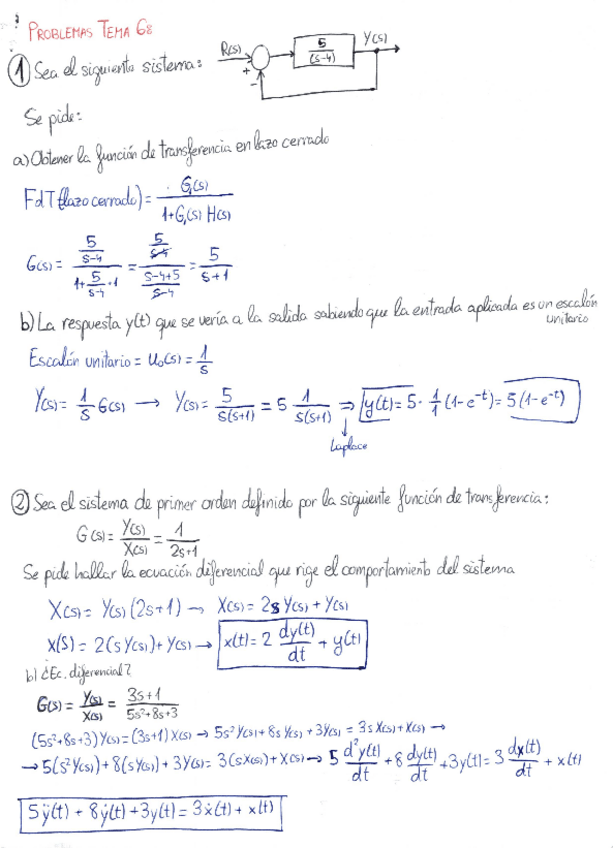 PROBLEMAS TEMA 68
① Sea el siguiente sistema: R(s) + - 5/(s-4) Y(s)
Se pide:
a) Obtener la función de transferencia en lazo cerrado
FdT (lazo cerrado) = G(s) / (1+G(s) H(s))
G(s) = (5/(s-4)) / (1+5/(s-4)·1) = (5/(s-4)) / ((s-4+5)/(s-4)) = 5/(s+1)
b) La respuesta y(t) que se vería a la salida sabiendo que la entrada aplicada es un escalón
unitario
Escalón unitario = u₀(s) = 1/s
Y(s) = 1/s G(s) → Y(s) = 5/(s(s+1)) = 5 1/(s(s+1)) ⇒ y(t) = 5· 1/1 (1-e^-t) = 5(1-e^-t)
↓
Laplace
② Sea el sistema de primer orden definido por la siguiente función de transferencia:
G(s) = Y(s)/X(s) = 1/(2s+1)
Se pide hallar la ecuación diferencial que rige el comportamiento del sistema
X(s) = Y(s) (2s+1) → X(s) = 2s Y(s) + Y(s)
X(s) = 2(s Y(s)) + Y(s) → x(t) = 2 dy(t)/dt + y(t)
b) ¿Ec. diferencial?
G(s) = Y(s)/X(s) = (3s+1)/(5s²+8s+3)
(5s²+8s+3) Y(s) = (3s+1) X(s) → 5s² Y(s) + 8s Y(s) + 3Y(s) = 3s X(s) + X(s) →
→ 5(s² Y(s)) + 8(s Y(s)) + 3Y(s) = 3(s X(s)) + X(s) → 5 d²y(t)/dt + 8 dy(t)/dt + 3y(t) = 3 dx(t)/dt + x(t)
5ÿ(t) + 8ẏ(t) + 3y(t) = 3ẋ(t) + x(t)